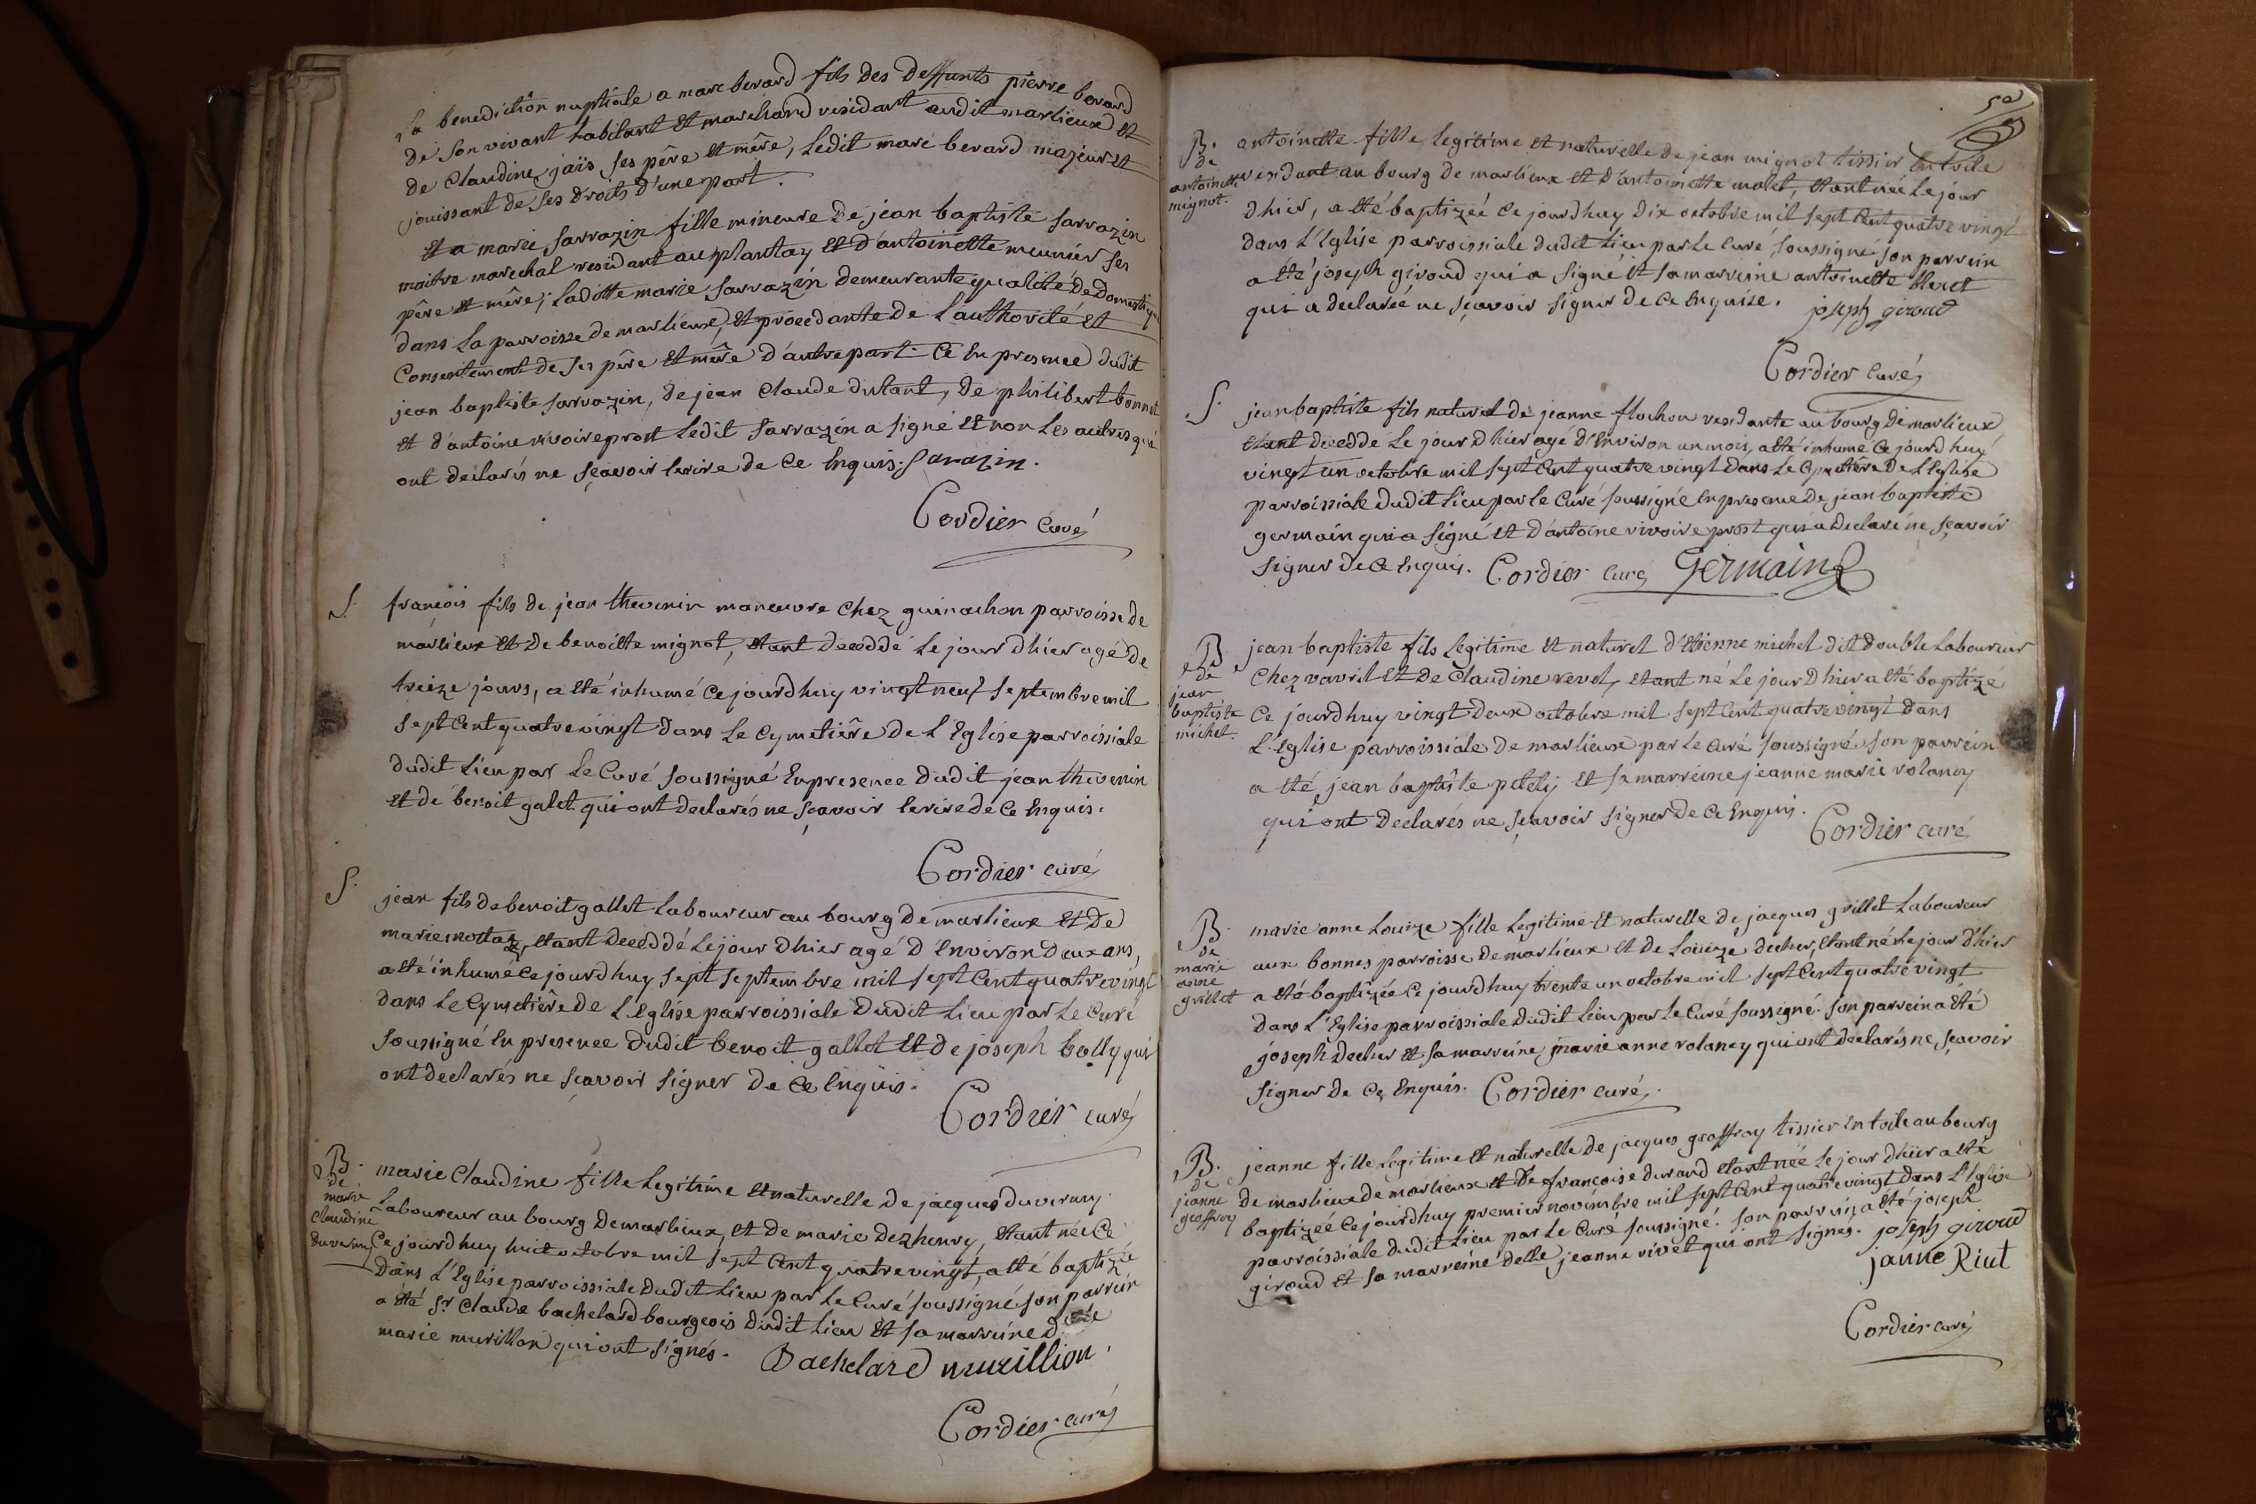 la benediction nuptiale a marc berard fils des deffunts pierre berard
de son vivant habitant et marchand residant audit marlieux et
de claudine jaïs ses pére et mére, ledit marc berard majeur et
jouissant de ses droits d'une part.
et a marie sarrazin fille mineure de jean baptiste sarrazin
maitre marechal residant au plantay et d'antoinette meunier ses
pére et mére, laditte marie sarrazin demeurante qualité de domestique
dans la parroisse de marlieux, et procedante de l'authorité et
consentement de ses pére et mére d'autre part. ce en presence dudit
jean baptiste sarrazin, de jean claude dutant, de philibert bonnet
et d'antoine vivoire prost ledit sarrazin a signé et non les autres qui
ont declarés ne sçavoir ecrire de ce enquis. sarazin.
Cordier curé
S. françois fils de jean thevenin manœuvre chez guinachon parroisse de
marlieux et de benoitte mignot, etant decedde le jour d'hier agé de
treize jours, a eté inhumé ce jourd'huy vingt neuf septembre mil
sept cent quatre vingt dans le cymetiére de l'Eglise parroissiale
dudit lieu par le curé soussigné en presence dudit jean thevenin
et de benoit galet qui ont declarés ne sçavoir ecrire de ce enquis.
Cordier curé
S. jean fils de benoit gallet laboureur au bourg de marlieux et de
marie mottaz, etant deceddé le jour d'hier agé d'environ deux ans,
a eté inhumé ce jourd'huy sept septembre mil sept cent quatre vingt
dans le cymetiére de l'Eglise parroissiale dudit lieu par le curé
soussigné en presence dudit benoit gallet et de joseph bolly qui
ont declarés ne sçavoir signer de ce enquis.
Cordier curé
B. de marie claudine duverney
marie claudine fille legitime et naturelle de jacques duverney
laboureur au bourg de marlieux et de marie dezhenry, etant née ce
ce jourd'huy huit octobre mil sept cent quatre vingt, a eté baptizée
dans l'Eglise parroissiale dudit lieu par le curé soussigné son parrein
a eté sr claude bachelard bourgeois dudit lieu et sa marreine
marie murillon qui ont signés. Bachelard murillion.
Cordier curé
52
B. de antoinette mignot.
antoinette fille legitime et naturelle de jean mignot tissier en toile
residant au bourg de marlieux et d'antoinette molet, etant née le jour
d'hier, a eté baptizeé ce jourd'huy dix octobre mil sept cent quatre vingt
dans l'Eglise parroissiale dudit lieu par le curé soussigné son parrein
a eté joseph giroud qui a signé et sa marreine antoinette
qui a declareé ne sçavoir signer de ce enquise. joseph giroud
Cordier curé
S. jean baptiste fils naturel de jeanne flochon residante au bourg de marlieux
etant decedde le jour d'hier agé d'environ un mois, a eté inhumé ce jourd'huy
vingt un octobre mil sept cent quatre vingt dans le cymetiére de l'Eglise
parroissiale dudit lieu par le curé soussigné en presence de jean baptiste
germain qui a signé et d'antoine vivoire prost qui a declaré ne sçavoir
signer de ce enquis. Cordier curé Germain
B de jean baptiste michel.
jean baptiste fils legitime et naturel d'etienne michel dit double laboureur
chez vavril et de claudine revel, etant né le jour d'hier a eté baptize
ce jourd'huy vingt deux octobre mil sept cent quatre vingt dans
l'Eglise parroissiale de marlieux par le curé soussigné son parrein
a eté jean baptiste petety et sa marreine jeanne marie rolancy
qui ont declarés ne sçavoir signer de ce enquis.
Cordier curé
B. de marie anne grillet
marie anne louize fille legitime et naturelle de jacques grillet laboureur
aux bonnes parroisse de marlieux et de louize decher, etant né le jour d'hier
a eté baptizée ce jourd'huy trente un octobre mil sept cent quatre vingt
dans l'Eglise parroissiale dudit lieu par le curé soussigné. son parrein a eté
joseph decher et sa marreine marie anne rolancy qui ont declarés ne sçavoir
signer de ce enquis. Cordier curé.
B. de jeanne geoffroy
jeanne fille legitime et naturelle de jacques geoffroy tissier en toile au bourg
de marlieux de marlieux et de françoise durand etant née le jour d'hier a eté
baptizeé ce jourd'huy premier novembre mil sept cent quatre vingt dans l'Eglise
parroissiale dudit lieu par le curé soussigné. son parrein a eté joseph
giroud et sa marreine delle jeanne rivet qui ont signés. joseph giroud
janne Riut
Cordier curé